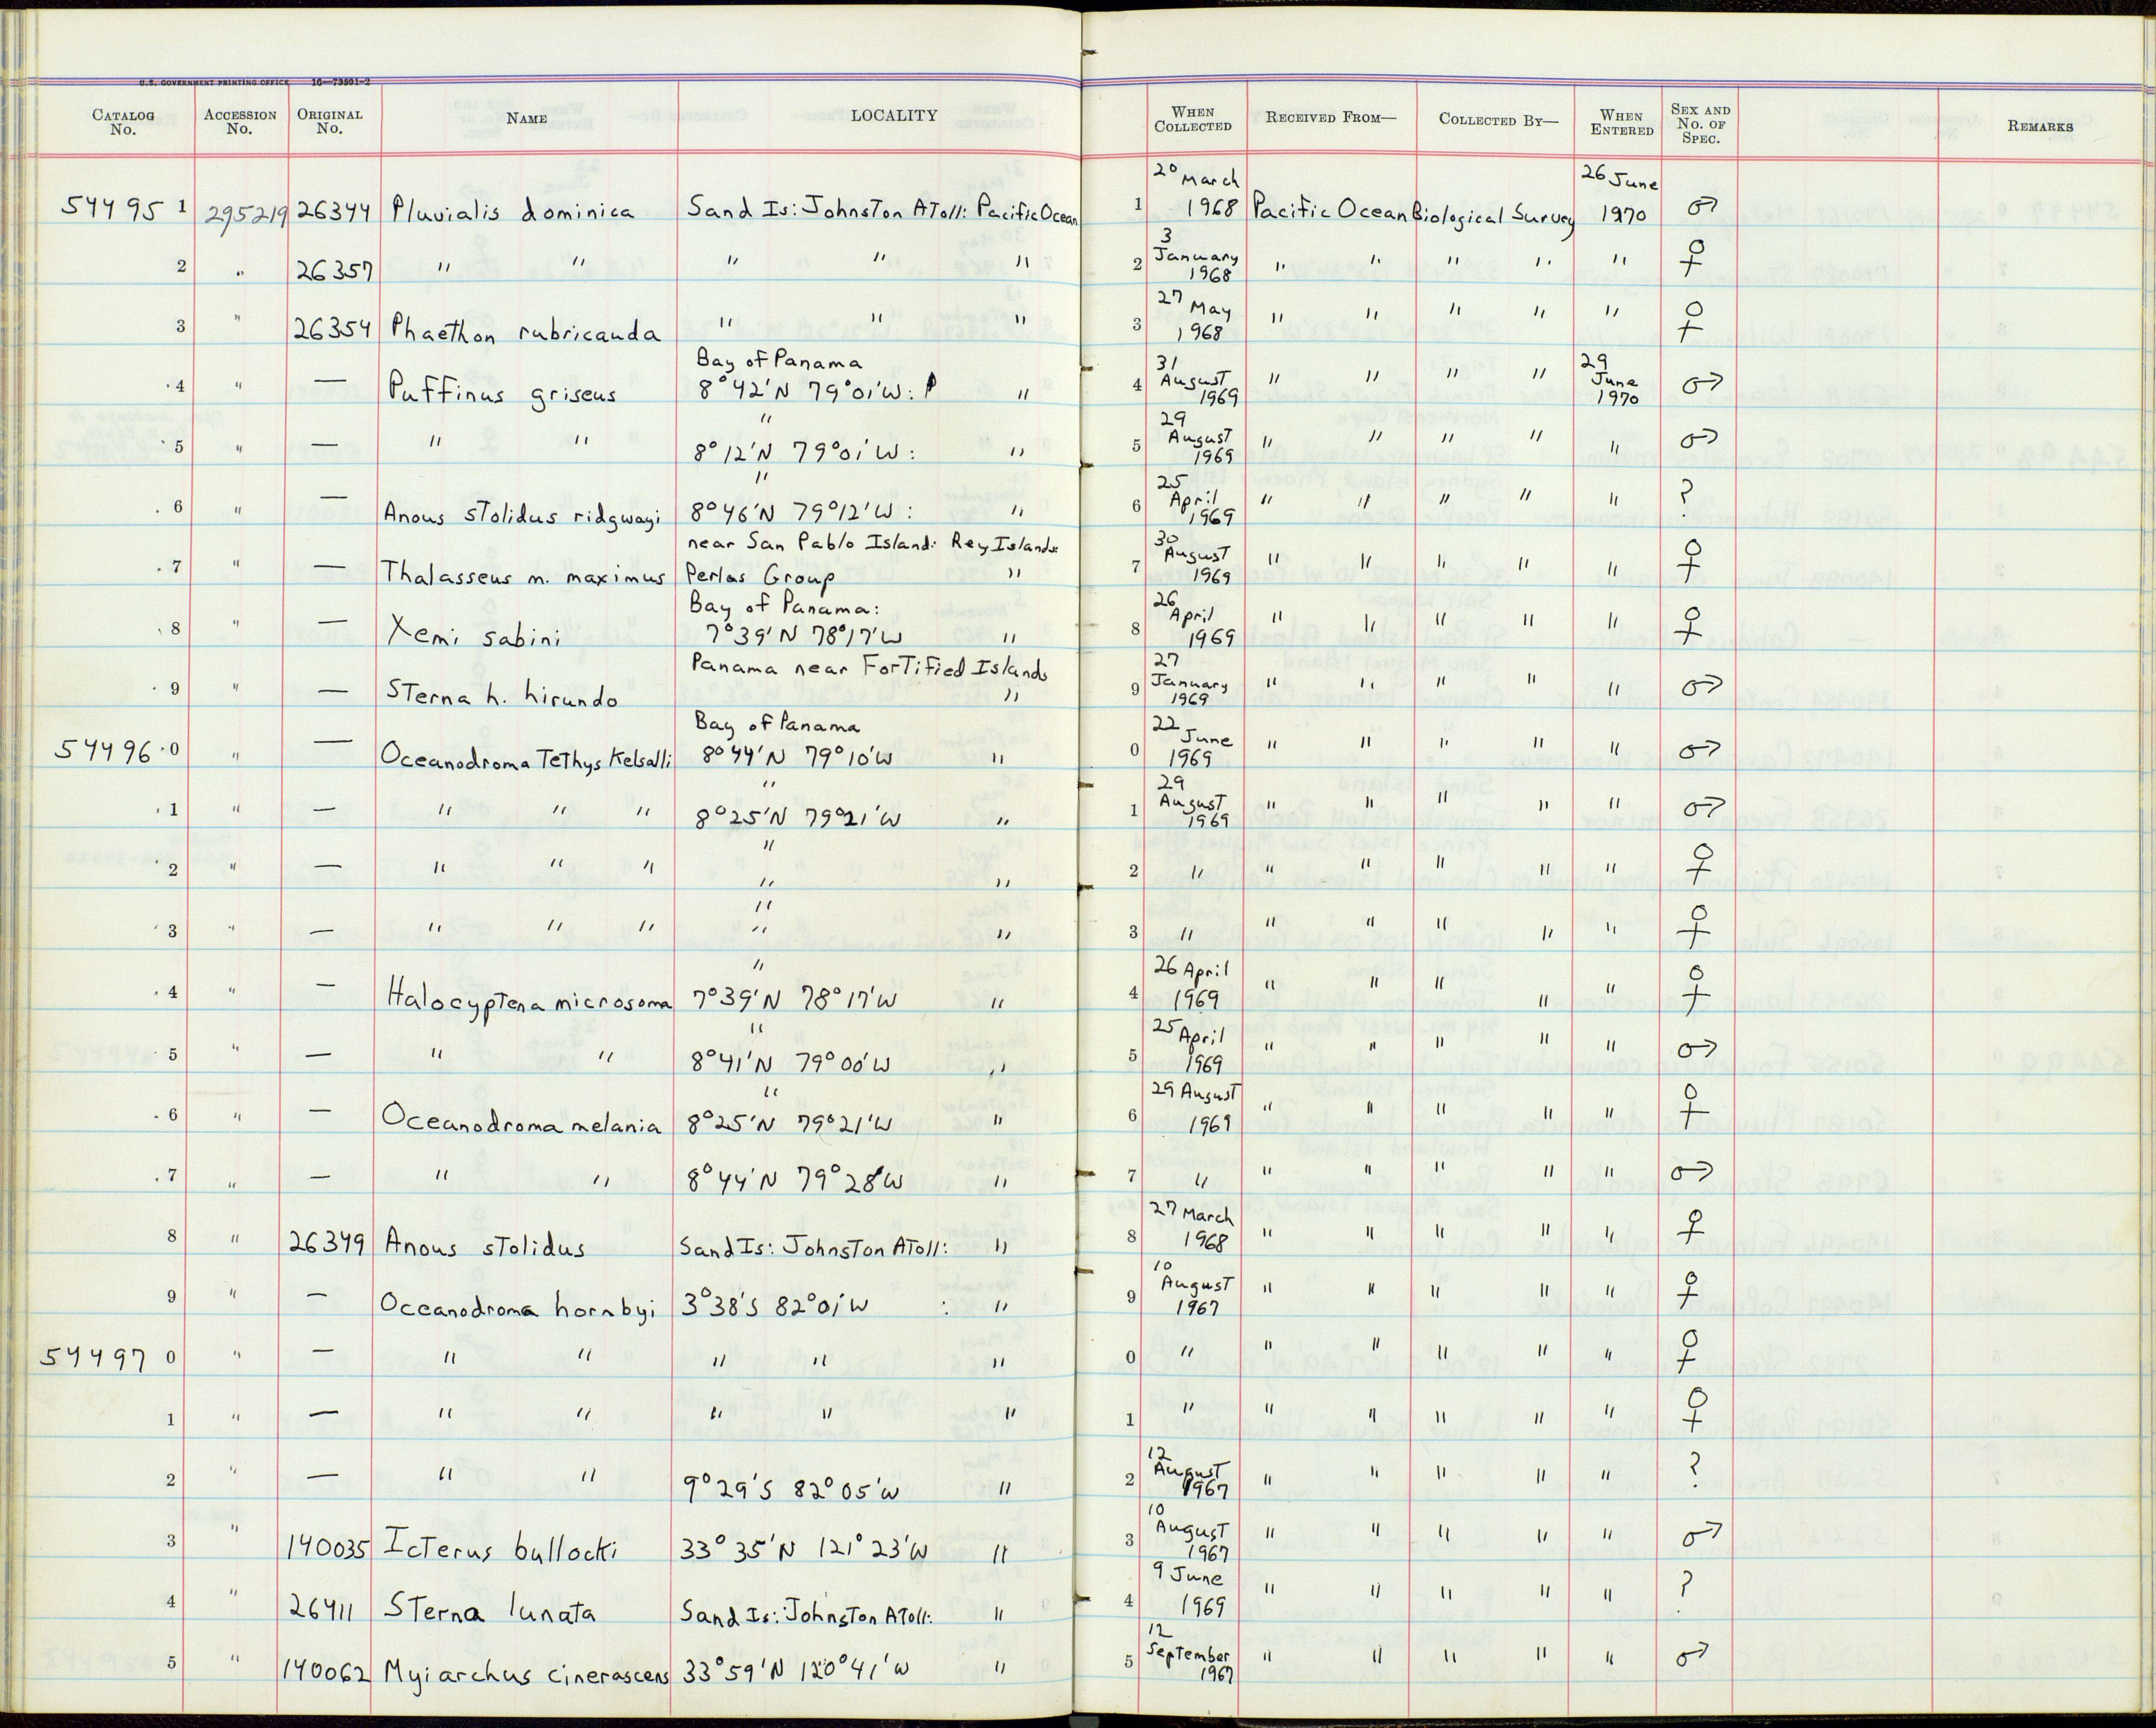 U.S. GOVERNMENT PRINTING OFFICE 16—73591-2
CATALOG No. ACCESSION No. ORIGINAL No. NAME LOCALITY WHEN COLLECTED RECEIVED FROM— COLLECTED BY— WHEN ENTERED SEX AND No. OF SPEC. REMARKS
54495 1 295219 26344 Pluvialis dominica Sand Is: Johnston Atoll: Pacific Ocean 1 20 March 1968 Pacific Ocean Biological Survey 26 June 1970 ♂
2 " 26357 " " " " " 2 3 January 1968 " " " " " ♀
3 " 26354 Phaethon rubricauda " " " 3 27 May 1968 " " " " " ♀
4 " — Puffinus griseus Bay of Panama 8°42'N 79°01'W: " 4 31 August 1969 " " " " 29 June 1970 ♂
5 " — " " " 8°12'N 79°01'W: " 5 29 August 1969 " " " " " ♂
6 " — Anous stolidus ridgwayi " 8°46'N 79°12'W: " 6 25 April 1969 " " " " " ?
7 " — Thalasseus m. maximus near San Pablo Island: Rey Islands: Perlas Group " 7 30 August 1969 " " " " " ♀
8 " — Xemi sabini Bay of Panama: 7°39'N 78°17'W " 8 26 April 1969 " " " " " ♀
9 " — Sterna h. hirundo Panama near Fortified Islands " 9 27 January 1969 " " " " " ♂
54496 0 " — Oceanodroma Tethys Kelsalli Bay of Panama 8°44'N 79°10'W " 0 22 June 1969 " " " " " ♂
1 " — " " " " 8°25'N 79°21'W " 1 29 August 1969 " " " " " ♂
2 " — " " " " " " 2 " " " " " " ♀
3 " — " " " " " " 3 " " " " " " ♀
4 " — Halocyptena microsoma " 7°39'N 78°17'W " 4 26 April 1969 " " " " " ♀
5 " — " " " 8°41'N 79°00'W " 5 25 April 1969 " " " " " ♂
6 " — Oceanodroma melania " 8°25'N 79°21'W " 6 29 August 1969 " " " " " ♀
7 " — " " 8°44'N 79°28'W " 7 " " " " " " ♂
8 " 26349 Anous stolidus Sand Is: Johnston Atoll: " 8 27 March 1968 " " " " " ♀
9 " — Oceanodroma hornbyi 3°38'S 82°01'W : " 9 10 August 1967 " " " " " ♀
54497 0 " — " " " " " 0 " " " " " " ♀
1 " — " " " " " 1 " " " " " " ♀
2 " — " " 9°29'S 82°05'W " 2 12 August 1967 " " " " " ?
3 " 140035 Icterus bullocki 33°35'N 121°23'W " 3 10 August 1967 " " " " " ♂
4 " 26411 Sterna lunata Sand Is: Johnston Atoll: " 4 9 June 1969 " " " " " ?
5 " 140062 Myiarchus cinerascens 33°59'N 120°41'W " 5 12 September 1967 " " " " " ♂